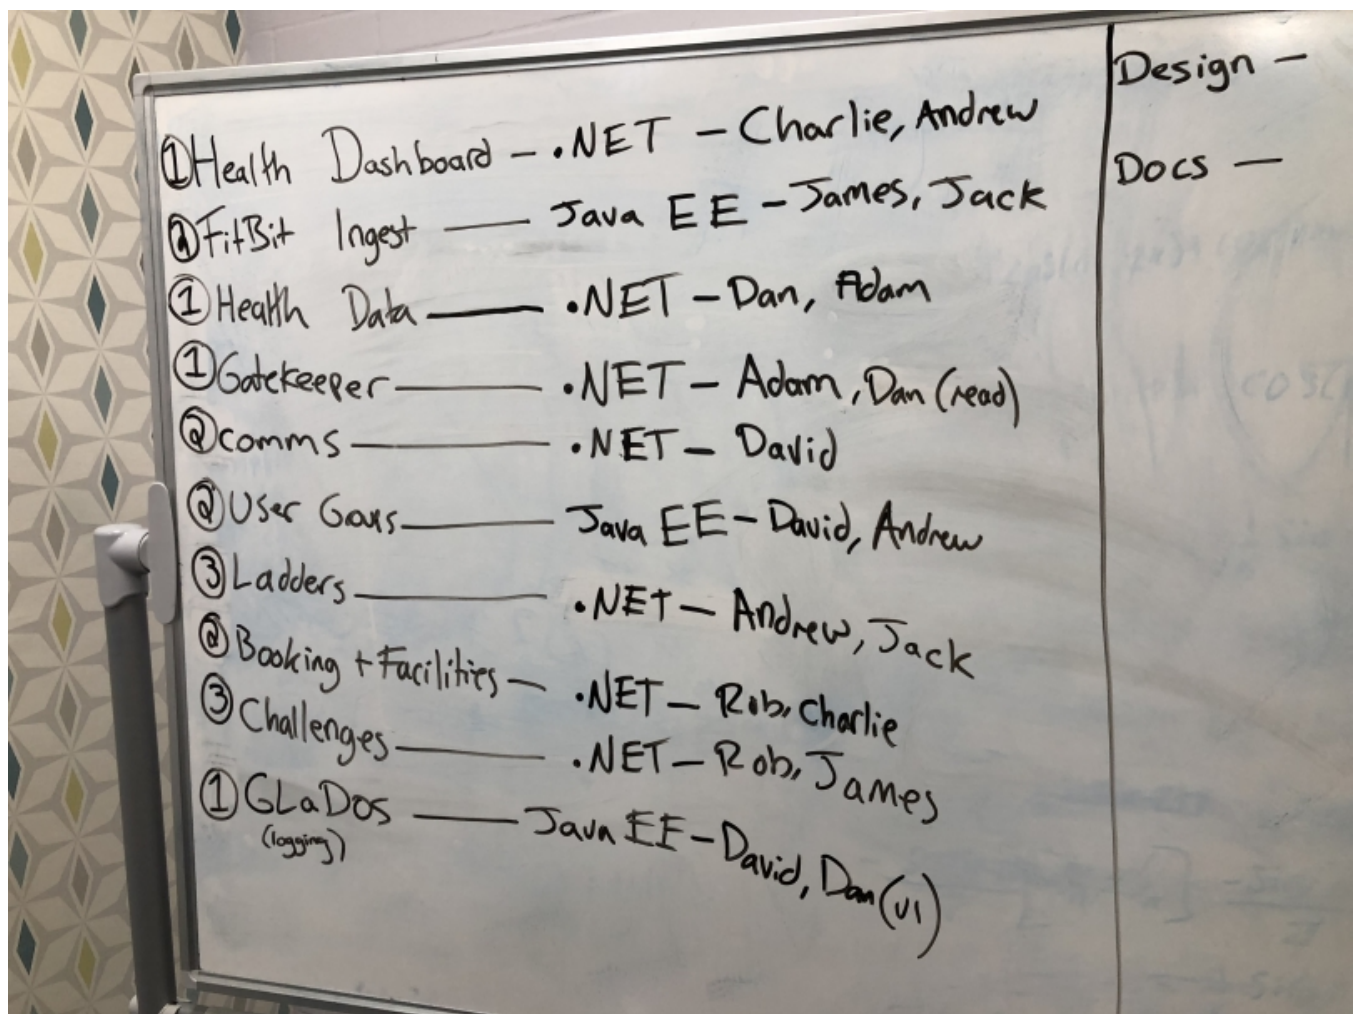 ① Health Dashboard - .NET - Charlie, Andrew
② FitBit Ingest - Java EE - James, Jack
① Health Data - .NET - Dan, Adam
① Gatekeeper - .NET - Adam, Dan (read)
② comms - .NET - David
② User Goals - Java EE - David, Andrew
③ Ladders - .NET - Andrew, Jack
② Booking + Facilities - .NET - Rob, Charlie
③ Challenges - .NET - Rob, James
① GLaDOS - Java EE - David, Dan (v1)
(logging)
Design -
Docs -